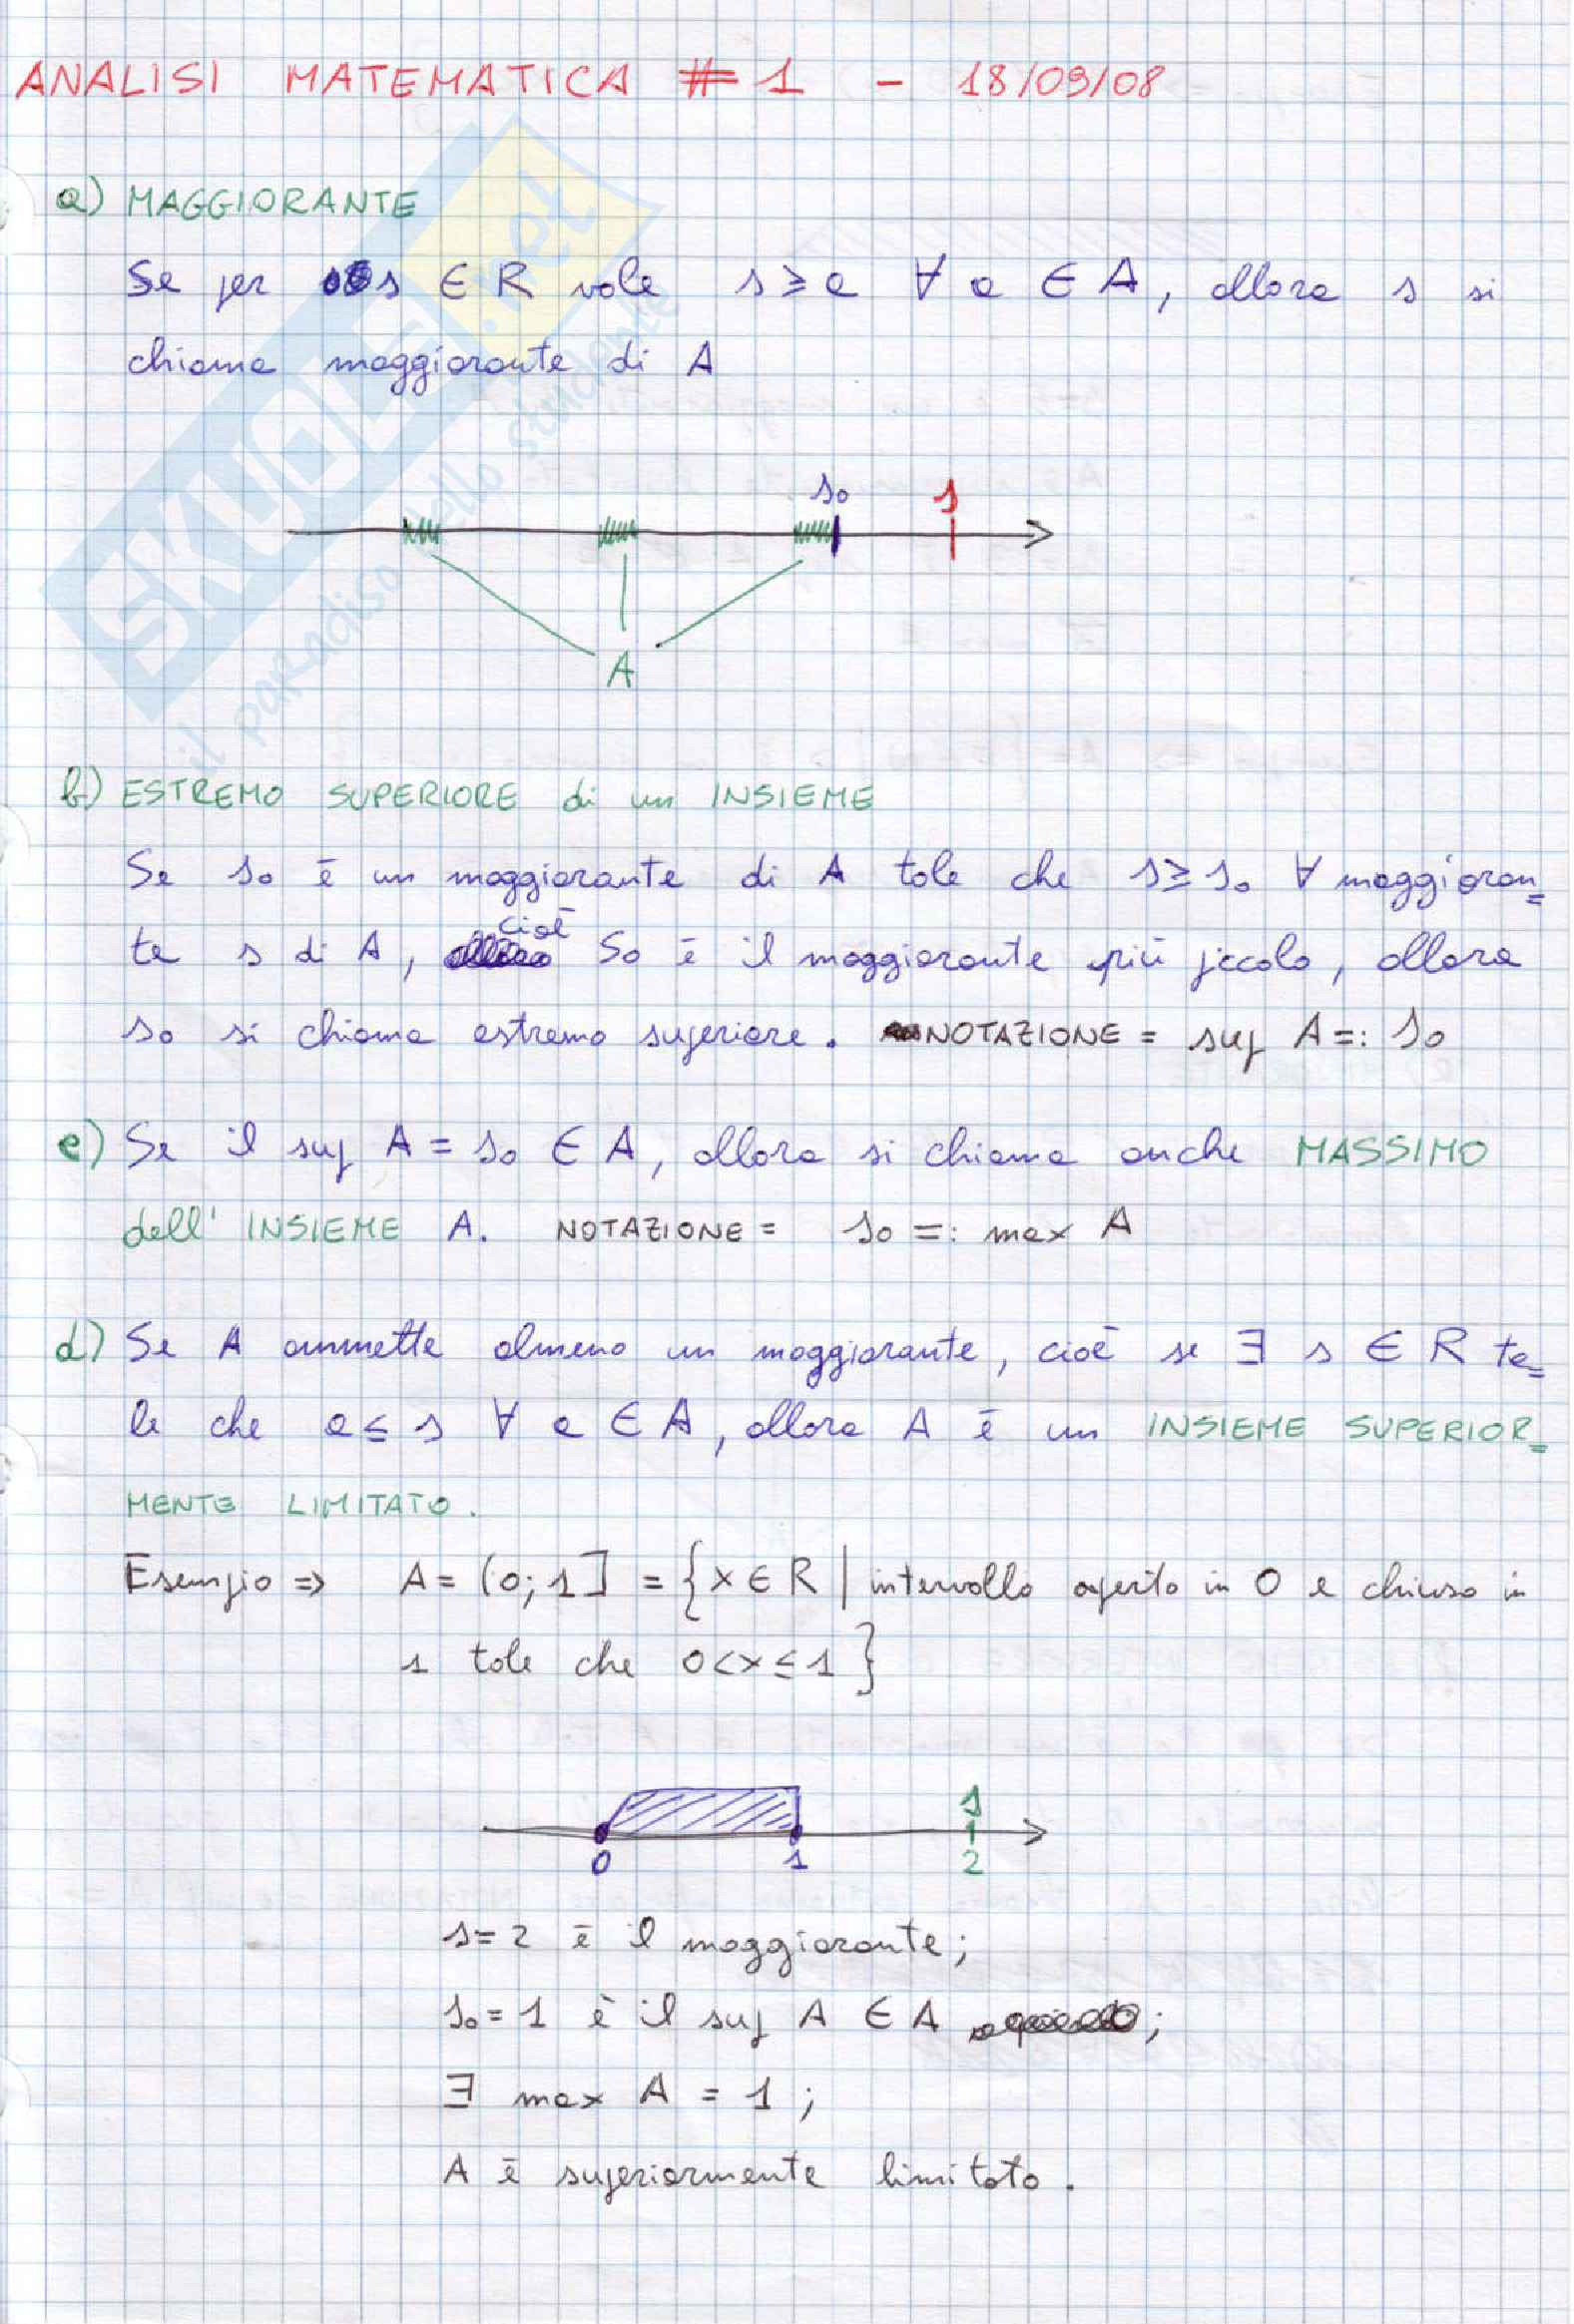 ANALISI MATEMATICA # 1 - 18/09/08
a) MAGGIORANTE
Se per s ∈ R vale s ≥ a ∀ a ∈ A, allora s si
chiama maggiorante di A
s₀ s
A
b) ESTREMO SUPERIORE di un INSIEME
Se s₀ è un maggiorante di A tale che s ≥ s₀ ∀ maggioran=
te s di A, cioè s₀ è il maggiorante più piccolo, allora
s₀ si chiama estremo superiore. NOTAZIONE = sup A =: s₀
c) Se il sup A = s₀ ∈ A, allora si chiama anche MASSIMO
dell' INSIEME A. NOTAZIONE = s₀ =: max A
d) Se A ammette almeno un maggiorante, cioè se ∃ s ∈ R ta=
le che a ≤ s ∀ a ∈ A, allora A è un INSIEME SUPERIOR=
MENTE LIMITATO.
Esempio ⇒ A = (0; 1] = {x ∈ R | intervallo aperto in 0 e chiuso in
1 tale che 0 < x ≤ 1}
s
0 1 2
s = 2 è il maggiorante;
s₀ = 1 è il sup A ∈ A ;
∃ max A = 1;
A è superiormente limitato.
SKUOLA.net
il paradiso dello studente